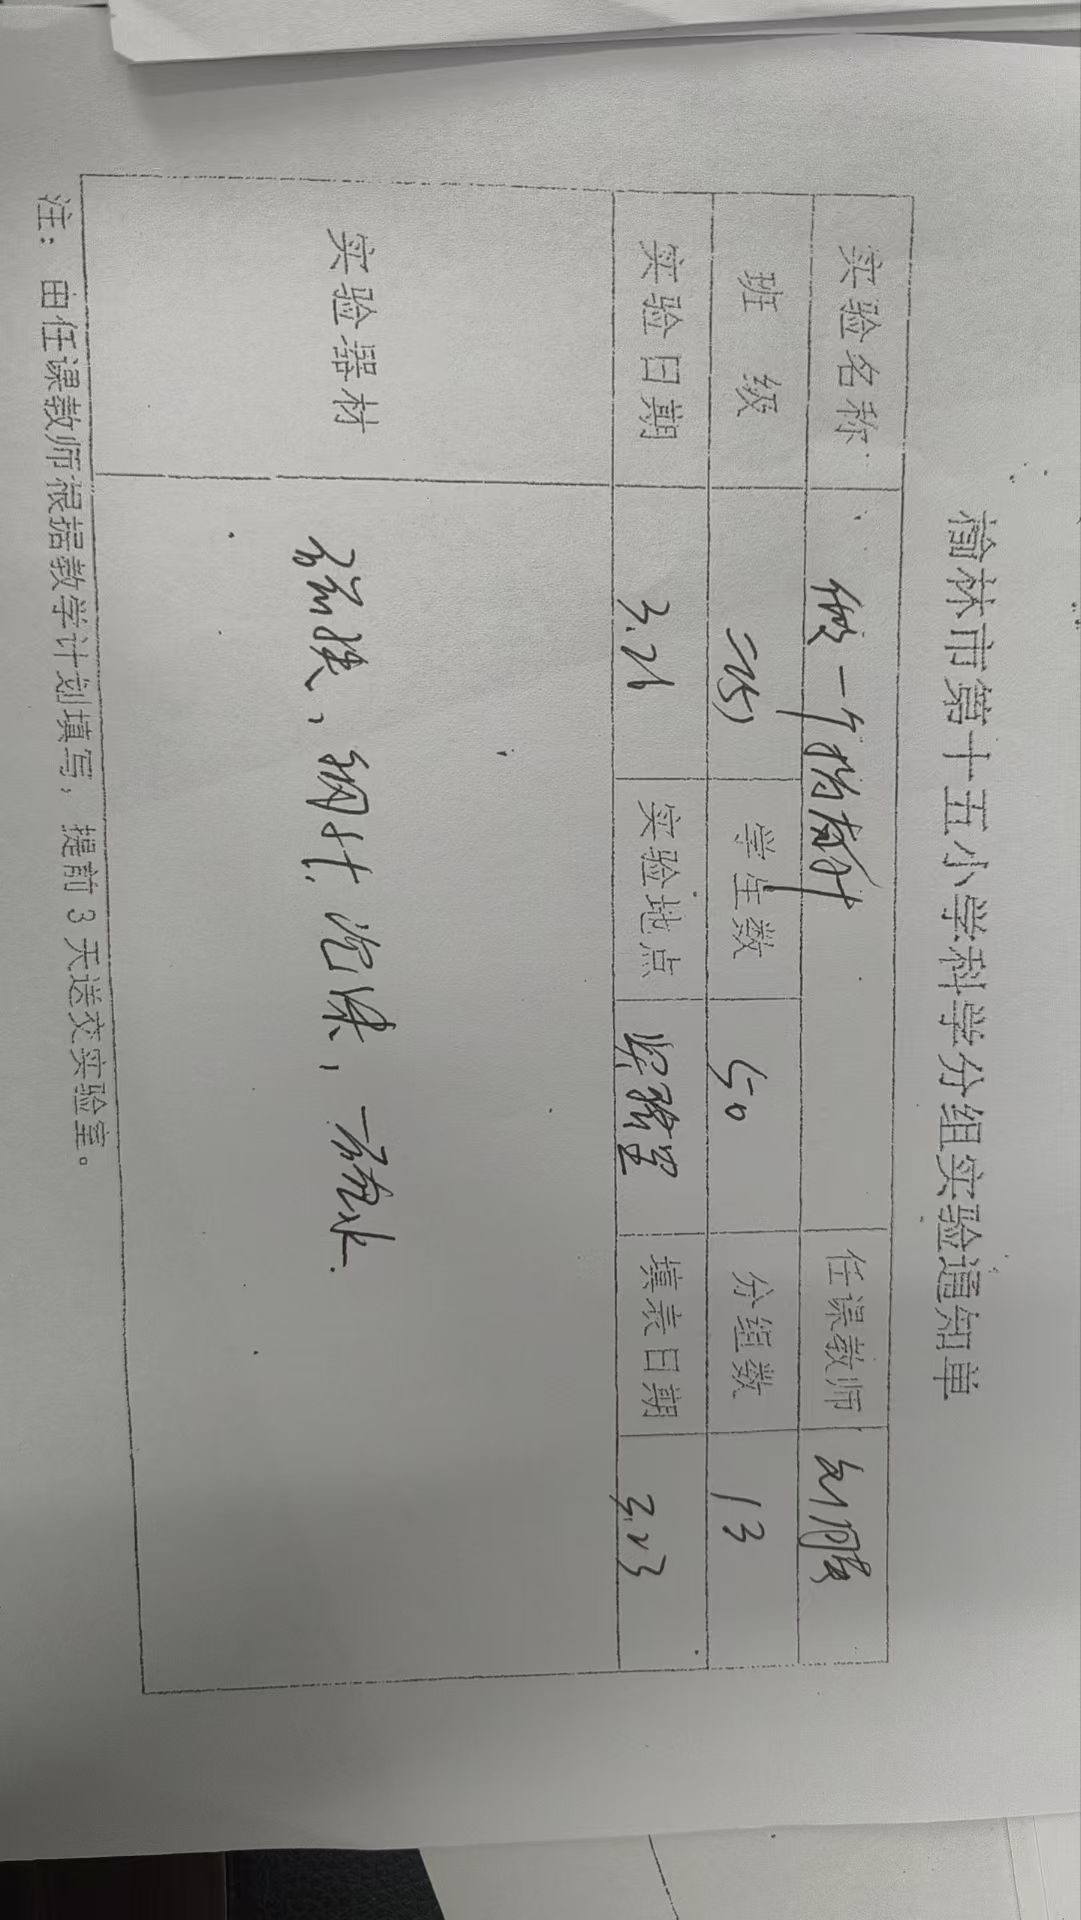 榆林市第十五小学科学分组实验通知单
实验名称 做一个指南针 任课教师
班 级 二(5) 学生数 50 分组数 13
实验日期 3.26 实验地点 实验室 填表日期 3.23
实验器材 磁铁、钢针、泡沫、一碗水.
注：由任课教师根据教学计划填写，提前3天送交实验室。